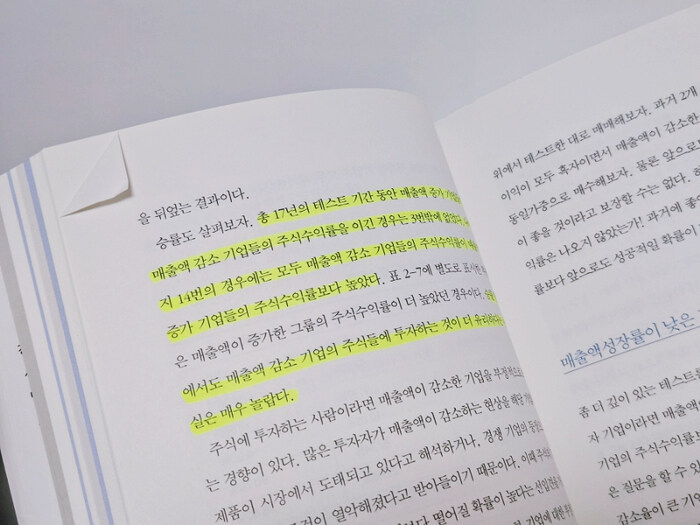 을 뒤엎는 결과이다.
승률도 살펴보자. 총 17년의 테스트 기간 동안 매출액 증가
매출액 감소 기업들의 주식수익률을 이긴 경우는 3번밖에
지 14번의 경우에는 모두 매출액 감소 기업들의 주식수익률이
증가 기업들의 주식수익률보다 높았다. 표 2-7에 별도로
은 매출액이 증가한 그룹의 주식수익률이 더 높았던 경우이다.
에서도 매출액 감소 기업의 주식들에 투자하는 것이 더
실은 매우 놀랍다.
주식에 투자하는 사람이라면 매출액이 감소한 기업을
는 경향이 있다. 많은 투자자가 매출액이 감소하는 현상을
제품이 시장에서 도태되고 있다고 해석하거나, 경쟁 기업의
열악해졌다고 받아들이기 때문이다.
떨어질 확률이 높다는
위에서 테스트한 대로 매매해보자. 과거 2개
이익이 모두 흑자이면서 매출액이 감소한
동일가중으로 매수해보자. 물론 앞으로
이 좋을 것이라고 보장할 수는 없다.
익률은 나오지 않았는가! 과거에 좋
률보다 앞으로도 성공적일 확률이
매출액성장률이 낮은
좀 더 깊이 있는 테스트를
자 기업이라면 매출액
기업의 주식수익률보
은 질문을 할 수 있
감소율이 큰 기